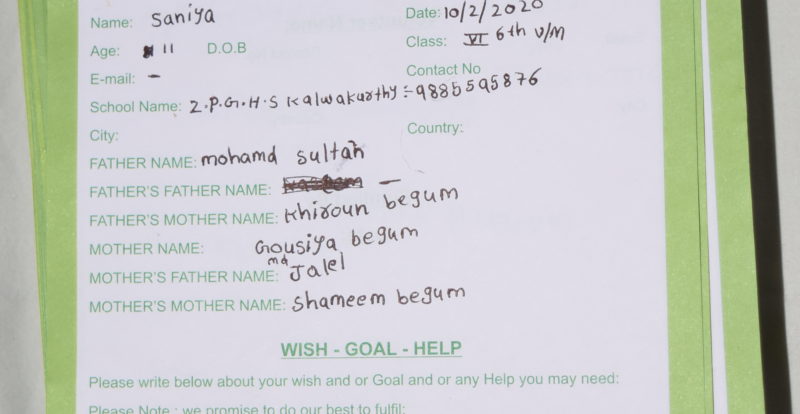 Name: Saniya Date: 10/2/2020
Age: 11 D.O.B Class: VI 6th U/M
E-mail: - Contact No
School Name: Z.P.G.H.S Kalwakurthy :- 9885595876
City: Country:
FATHER NAME: mohamd sultan
FATHER'S FATHER NAME: -
FATHER'S MOTHER NAME: Khiroun begum
MOTHER NAME: Gousiya begum
MOTHER'S FATHER NAME: md Jalel
MOTHER'S MOTHER NAME: Shameem begum
WISH - GOAL - HELP
Please write below about your wish and or Goal and or any Help you may need:
Please Note : we promise to do our best to fulfil: